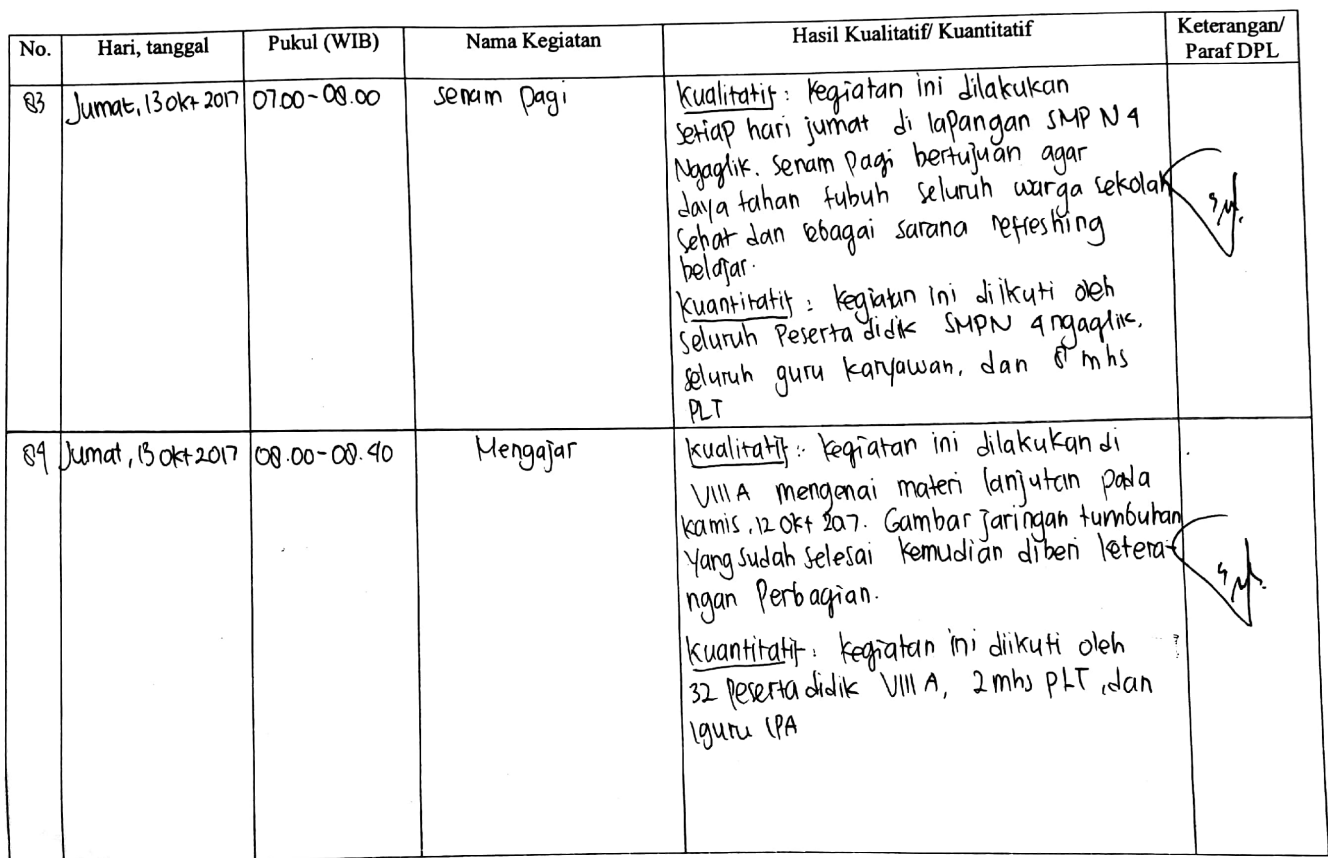 No. Hari, tanggal Pukul (WIB) Nama Kegiatan Hasil Kualitatif/ Kuantitatif Keterangan/
Paraf DPL
83 Jumat, 13 okt 2017 07.00-08.00 senam pagi Kualitatif : Kegiatan ini dilakukan
setiap hari jumat di lapangan SMP N 4
Ngaglik. Senam Pagi bertujuan agar
daya tahan tubuh seluruh warga sekolah
sehat dan sebagai sarana refreshing
belajar.
Kuantitatif : kegiatan ini diikuti oleh
seluruh Peserta didik SMPN 4 ngaglik,
seluruh guru karyawan, dan 8 mhs
PLT
84 Jumat, 13 okt 2017 08.00-08.40 Mengajar kualitatif : kegiatan ini dilakukan di
VIII A mengenai materi lanjutan pada
kamis, 12 Okt 2017. Gambar Jaringan tumbuhan
yang sudah selesai kemudian diberi ketera-
ngan Perbagian.
Kuantitatif : kegiatan ini diikuti oleh
32 peserta didik VIII A, 2 mhs PLT, dan
1 guru IPA